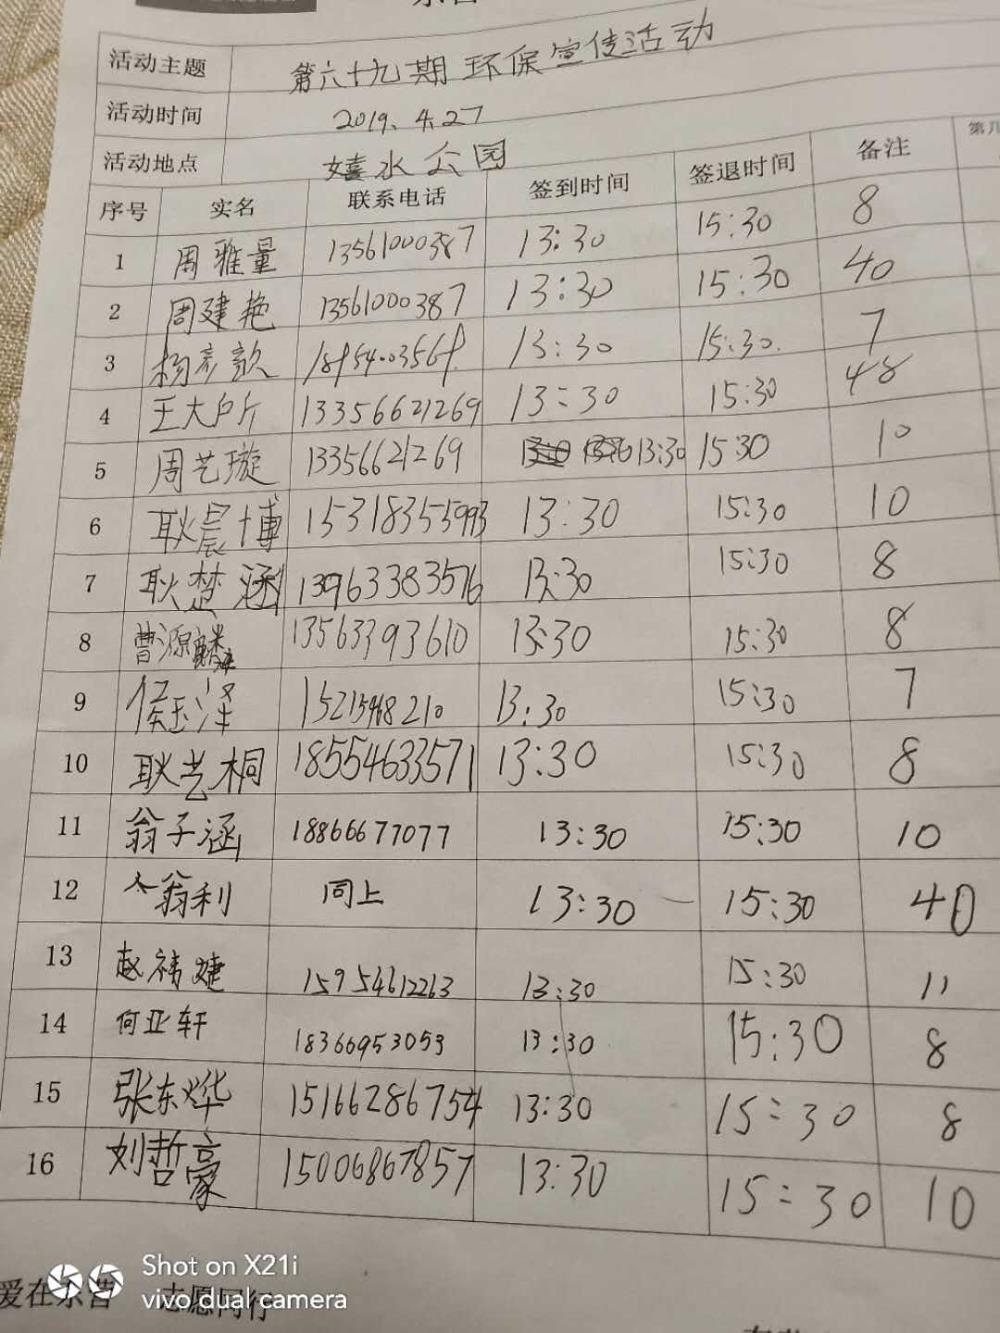 活动主题 第六十九期 环保宣传活动
活动时间 2019.4.27
活动地点 嬉水公园
序号 实名 联系电话 签到时间 签退时间 备注 第几
1 周雅量 13561000387 13:30 15:30 8
2 周建艳 13561000387 13:30 15:30 40
3 杨彦歆 13:30 15:30. 7
4 王大户斤 13356621269 13:30 15:30 48
5 周艺璇 13356621269 13:30 15:30 10
6 耿晨博 15318355993 13:30 15:30 10
7 耿楚涵 13963383576 13:30 15:30 8
8 曹源麟 13563393610 13:30 15:30 8
9 侯玉泽 13:30 15:30 7
10 耿艺桐 18554633571 13:30 15:30 8
11 翁子涵 18866677077 13:30 15:30 10
12 翁利 同上 13:30 15:30 40
13 赵祎婕 15954612263 13:30 15:30 11
14 何亚轩 18366953053 13:30 15:30 8
15 张东烨 15166286754 13:30 15:30 8
16 刘哲豪 15006867857 13:30 15:30 10
Shot on X21i
vivo dual camera
爱在东营 志愿同行